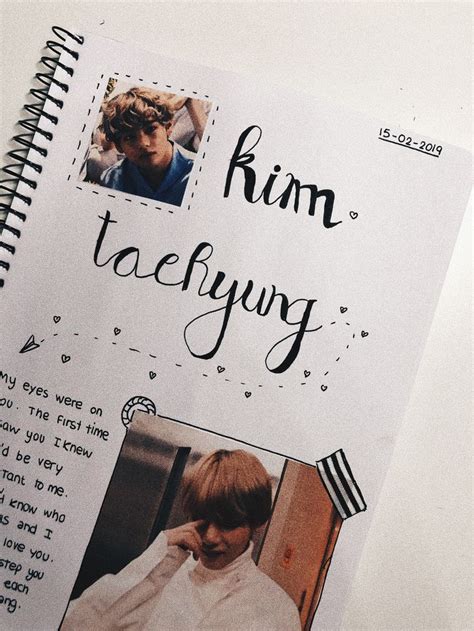 15-02-2019
kim
taehyung
My eyes were on
ou. The first time
saw you I knew
'd be very
tant to me.
I know who
as and I
love you.
step you
each
ang.